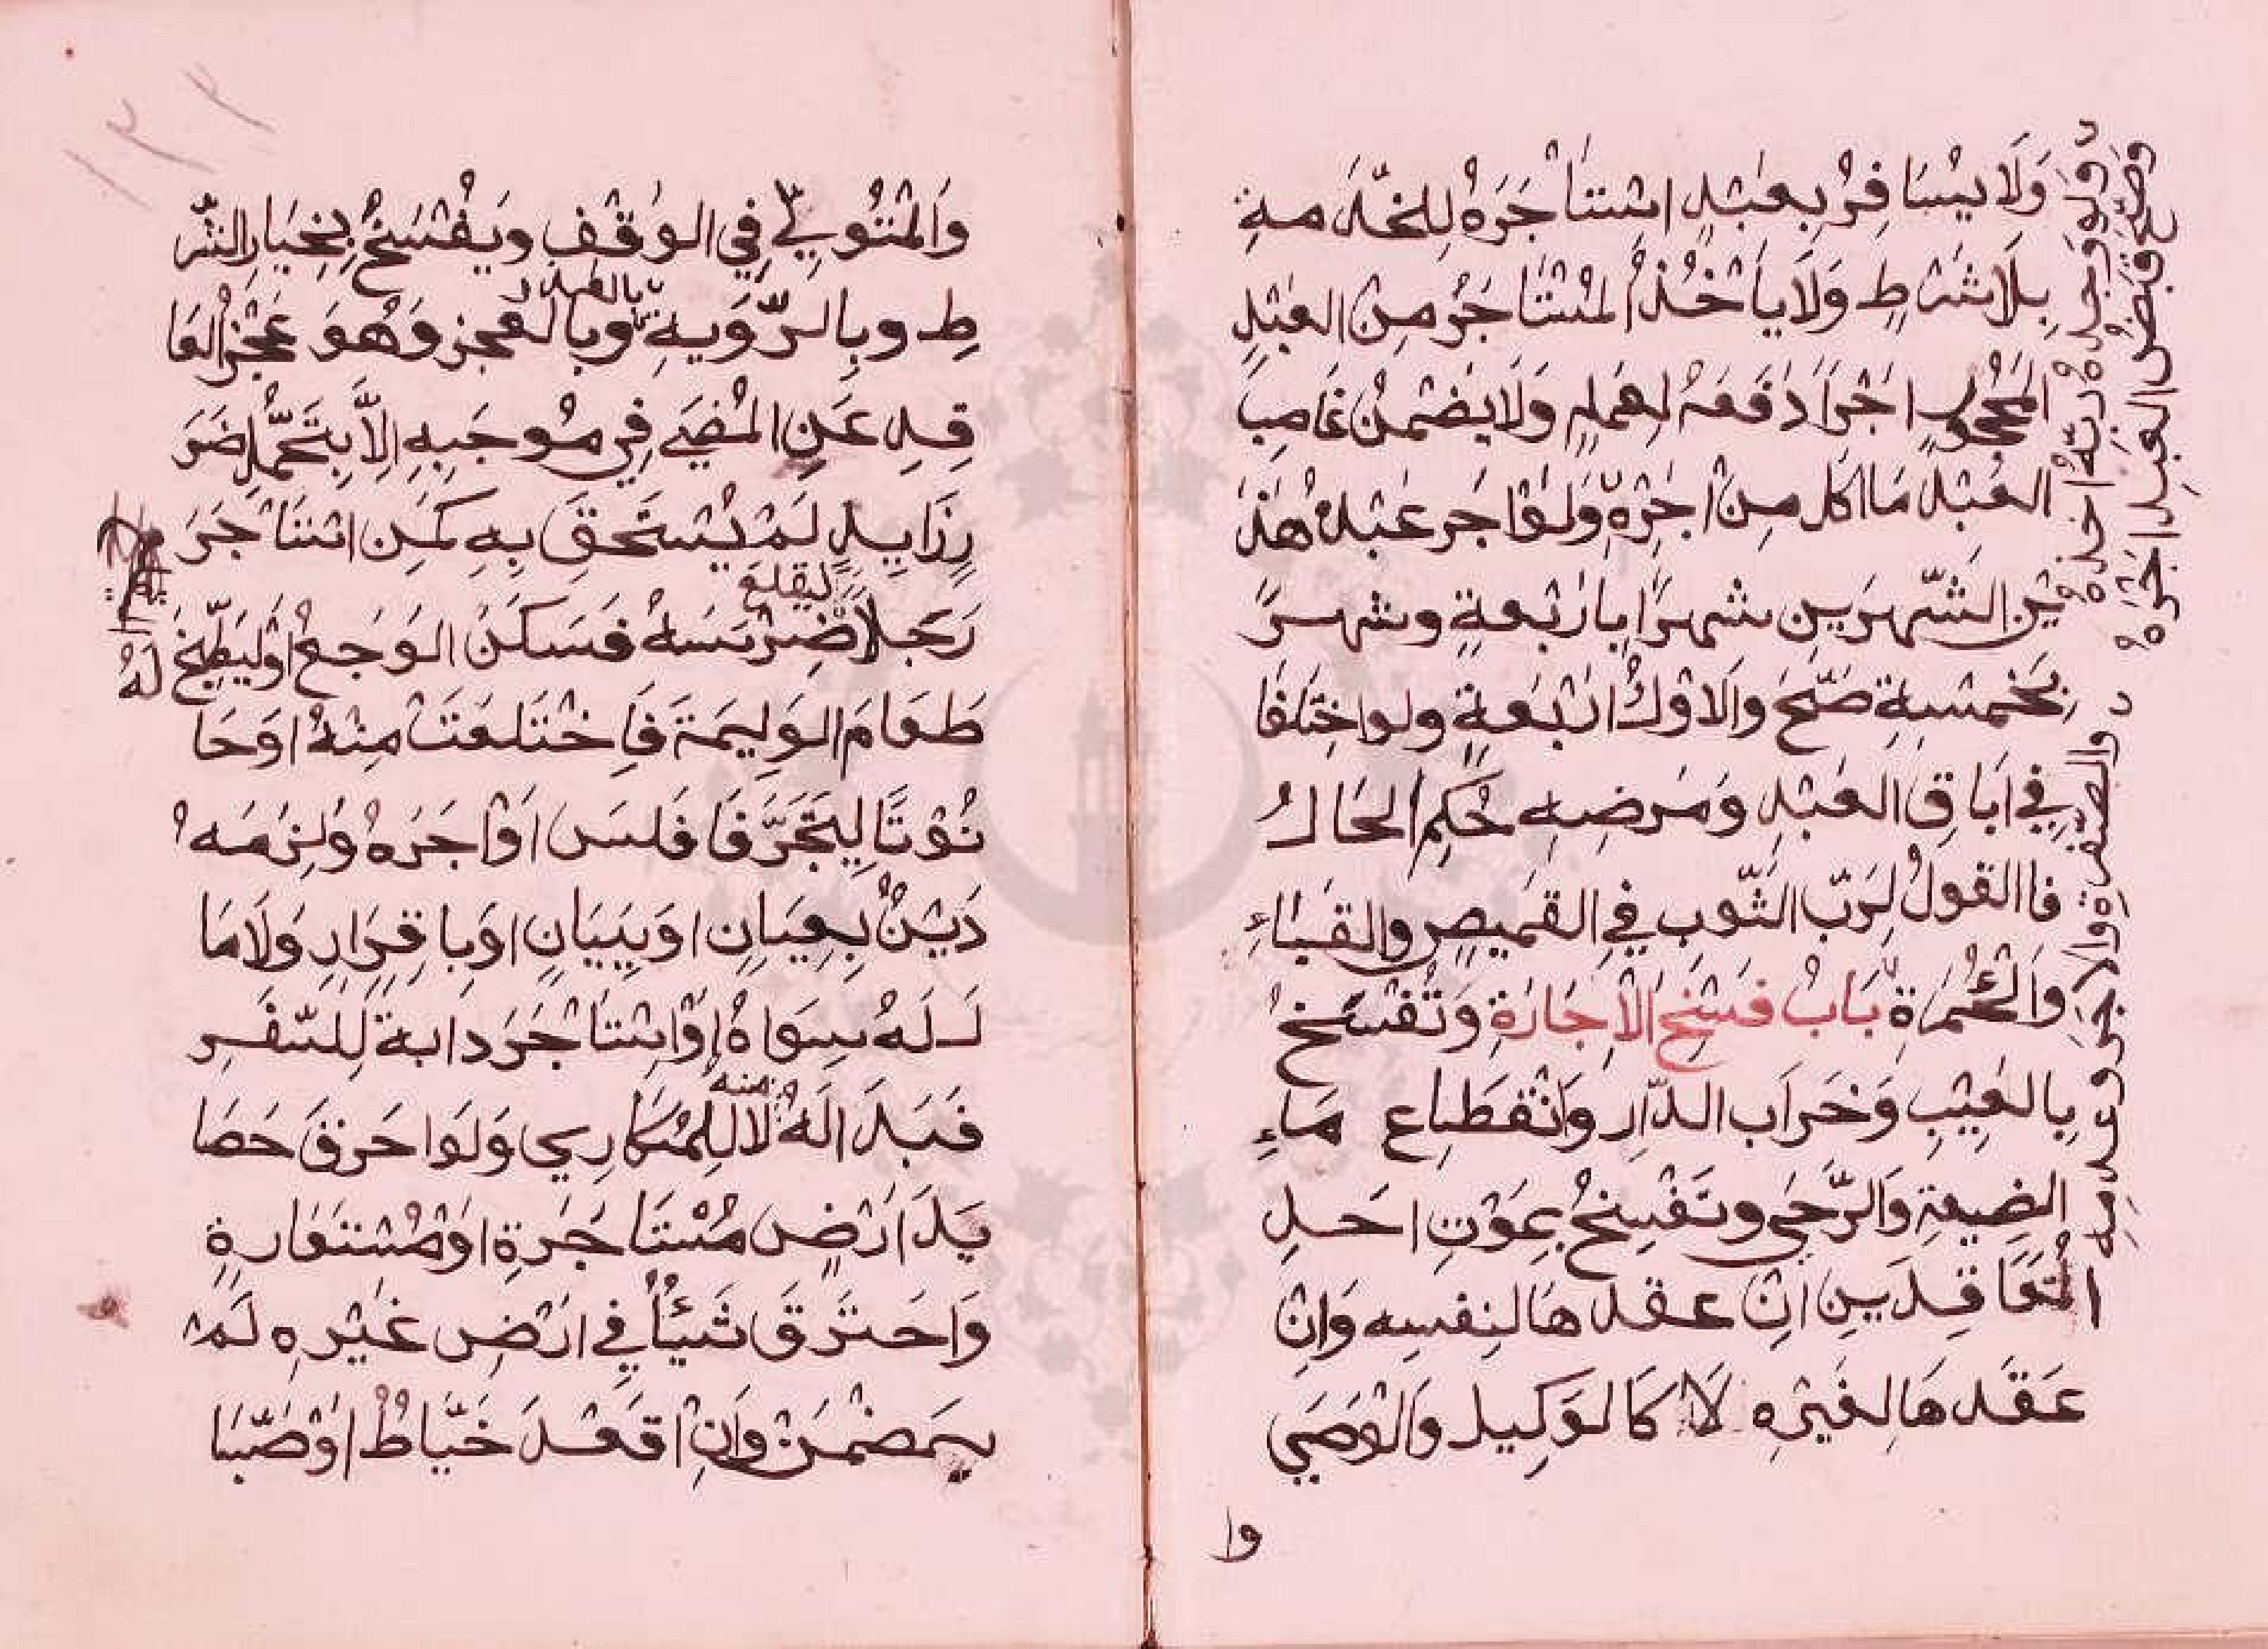 وَلَا يُسَافِرُ بِعَبْدٍ اسْتَأْجَرَهُ لِلخَّدَمةِ
بِلَا شَرْطٍ وَلَا يَأْخُذُ الْمُسْتَأْجَرُ مِنَ العَبْدِ
المَحْجُورِ اَجْرًا دَفَعَهُ لِعَمَلِهِ وَلَا يَضْمَنُ غَاصِبُ
العَبْدِ مَا اكل مِنْ اَجْرِهِ وَلَوْ اجَر عَبْدَهُ هٰذَ
يْنِ الشَّهرَينِ شهرًا بِاَرْبَعةٍ وشهرً
بِخَمْسةٍ صَحَّ وَالاَوَّلُ اَرْبَعَةٍ ولو اخِتَلَفَا
فِي اِبَاقِ العَبْدِ وَمَرَضِهِ حُكِّمَ الحَالُ
فاالقولُ لِرَبِّ الثَّوبِ فِي القَمِيصِ والقَبَاءِ
وَالْحُمْرَةِ بَابُ فَسْخِ الاِجَارَةِ وَتُفْسَخُ
بِالعَيْبِ وَخَرَابِ الدَّارِ وَانْقِطَاعِ مَاءِ
الضيعةِ وَالرَّحَى وتَفْسِخُ بِمَوْتِ اَحَدِ
المُتَعَاقِدَينِ اِنْ عقدهَا لِنفسِه وَاِنْ
عَقَدهَا لِغَيْرِهِ لَا كَالوَكِيلِ وَالْوَصِيِّ
وا
ولو وجده ربّه اخذهُ
وصَحَّ قَبضُ العَبدِ اَجْرَهُ
والصفرة والاجر وعدمه
وَالْمُتَوَلِّي فِي الوَقْفِ وَيُفْسَخُ بِخِيَارِ الشَّر
طِ وبِالرُّويةِ وبالعجز وَهُوَ عَجْزُ العَا
بالعذر
قِدِ عَنِ الْمُضِي فِي مُوجَبِهِ اِلَّا بِتَحَمُّلِ ضَرَ
رٍ زَايِدٍ لَمْ يُسْتَحَقَّ بِهِ كَمَنِ اسْتَأْجَرَ
لِيَقلَعَ
رَجُلًا ضِرْسَهُ فَسَكَنَ الوَجَعُ اَوْ لِيَطْبُخَ لَهُ
طَعَامَ الوَلِيمَةَ فَاخْتَلَعَتْ مِنْهُ اَوْ حَا
نُوتًا لِيَتَّجَرَ فَافلَسَ اَوْ اَجَرَهُ وَلَزِمَهُ
دَيْنٌ بِعِيَانِ اَو بِبَيَانٍ اَوْ بِاقِرَارِ وَلَا مَا
لَ لَهُ سِوَاهُ اَوْ اسْتَأْجَرَ دابةً لِلسَّفَرِ
منه
فَبَدَا لَهُ لَا لِلْمُكَارِي وَلَوا حَرَقَ حَصَا
يَدَ اَرْضٍ مُسْتَأجَرَةِ اَوْ مُسْتَعَارةٍ
وَاحَترَقَ شَيْأٌ فِي اَرْضِ غَيْرِهِ لَمْ
يَضْمَنْ وَاِنْ اَقْعَدَ خَيَّاطٌ اَوْ صَبَّا